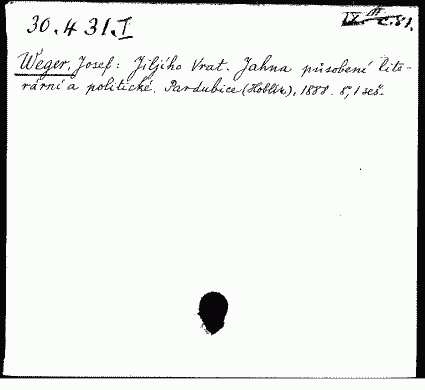 30.431.I
Weger, Josef: Jiljího Vrat. Jahna působení lite-
rární a politické. Pardubice (Hoblík), 1888. 8°, 1 seš.